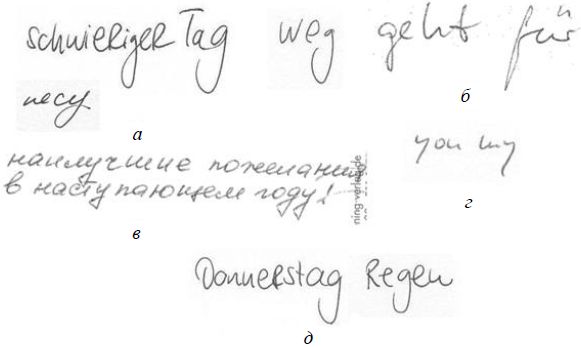 schwieriger Tag weg geht für
несу
а
б
наилучшие пожелания
в наступающем году!
ning-verlag.de
в
you my
г
Donnerstag Regen
д